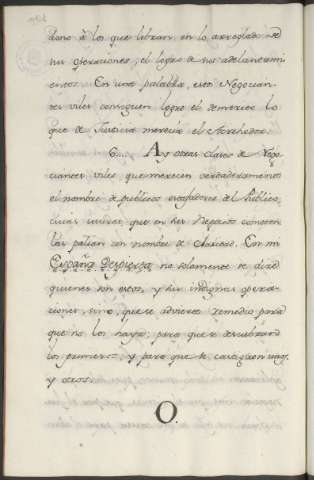 dono à los que libran en lo arreglado de
sus operaciones, el logro de sus adelantami
entos. En una palabra, estos Negocian
tes viles consiguen logre el demerito lo
que de Justicia merecia el Acrehedor.
6.... Ay otras clases de Nego
ciantes viles que merecen verdaderamente
el nombre de publicos del Publico,
cuias que en su Negocio cometen
las palian con nombre de Caridad. En mi
España Despierta, no solamente se dirà
quienes son estos, y sus indignas opera
ciones, sino, que se advierte remedio para
que no los haya; para que se descubran
los primeros; y para que se castiguen unos,
y otros.
O.